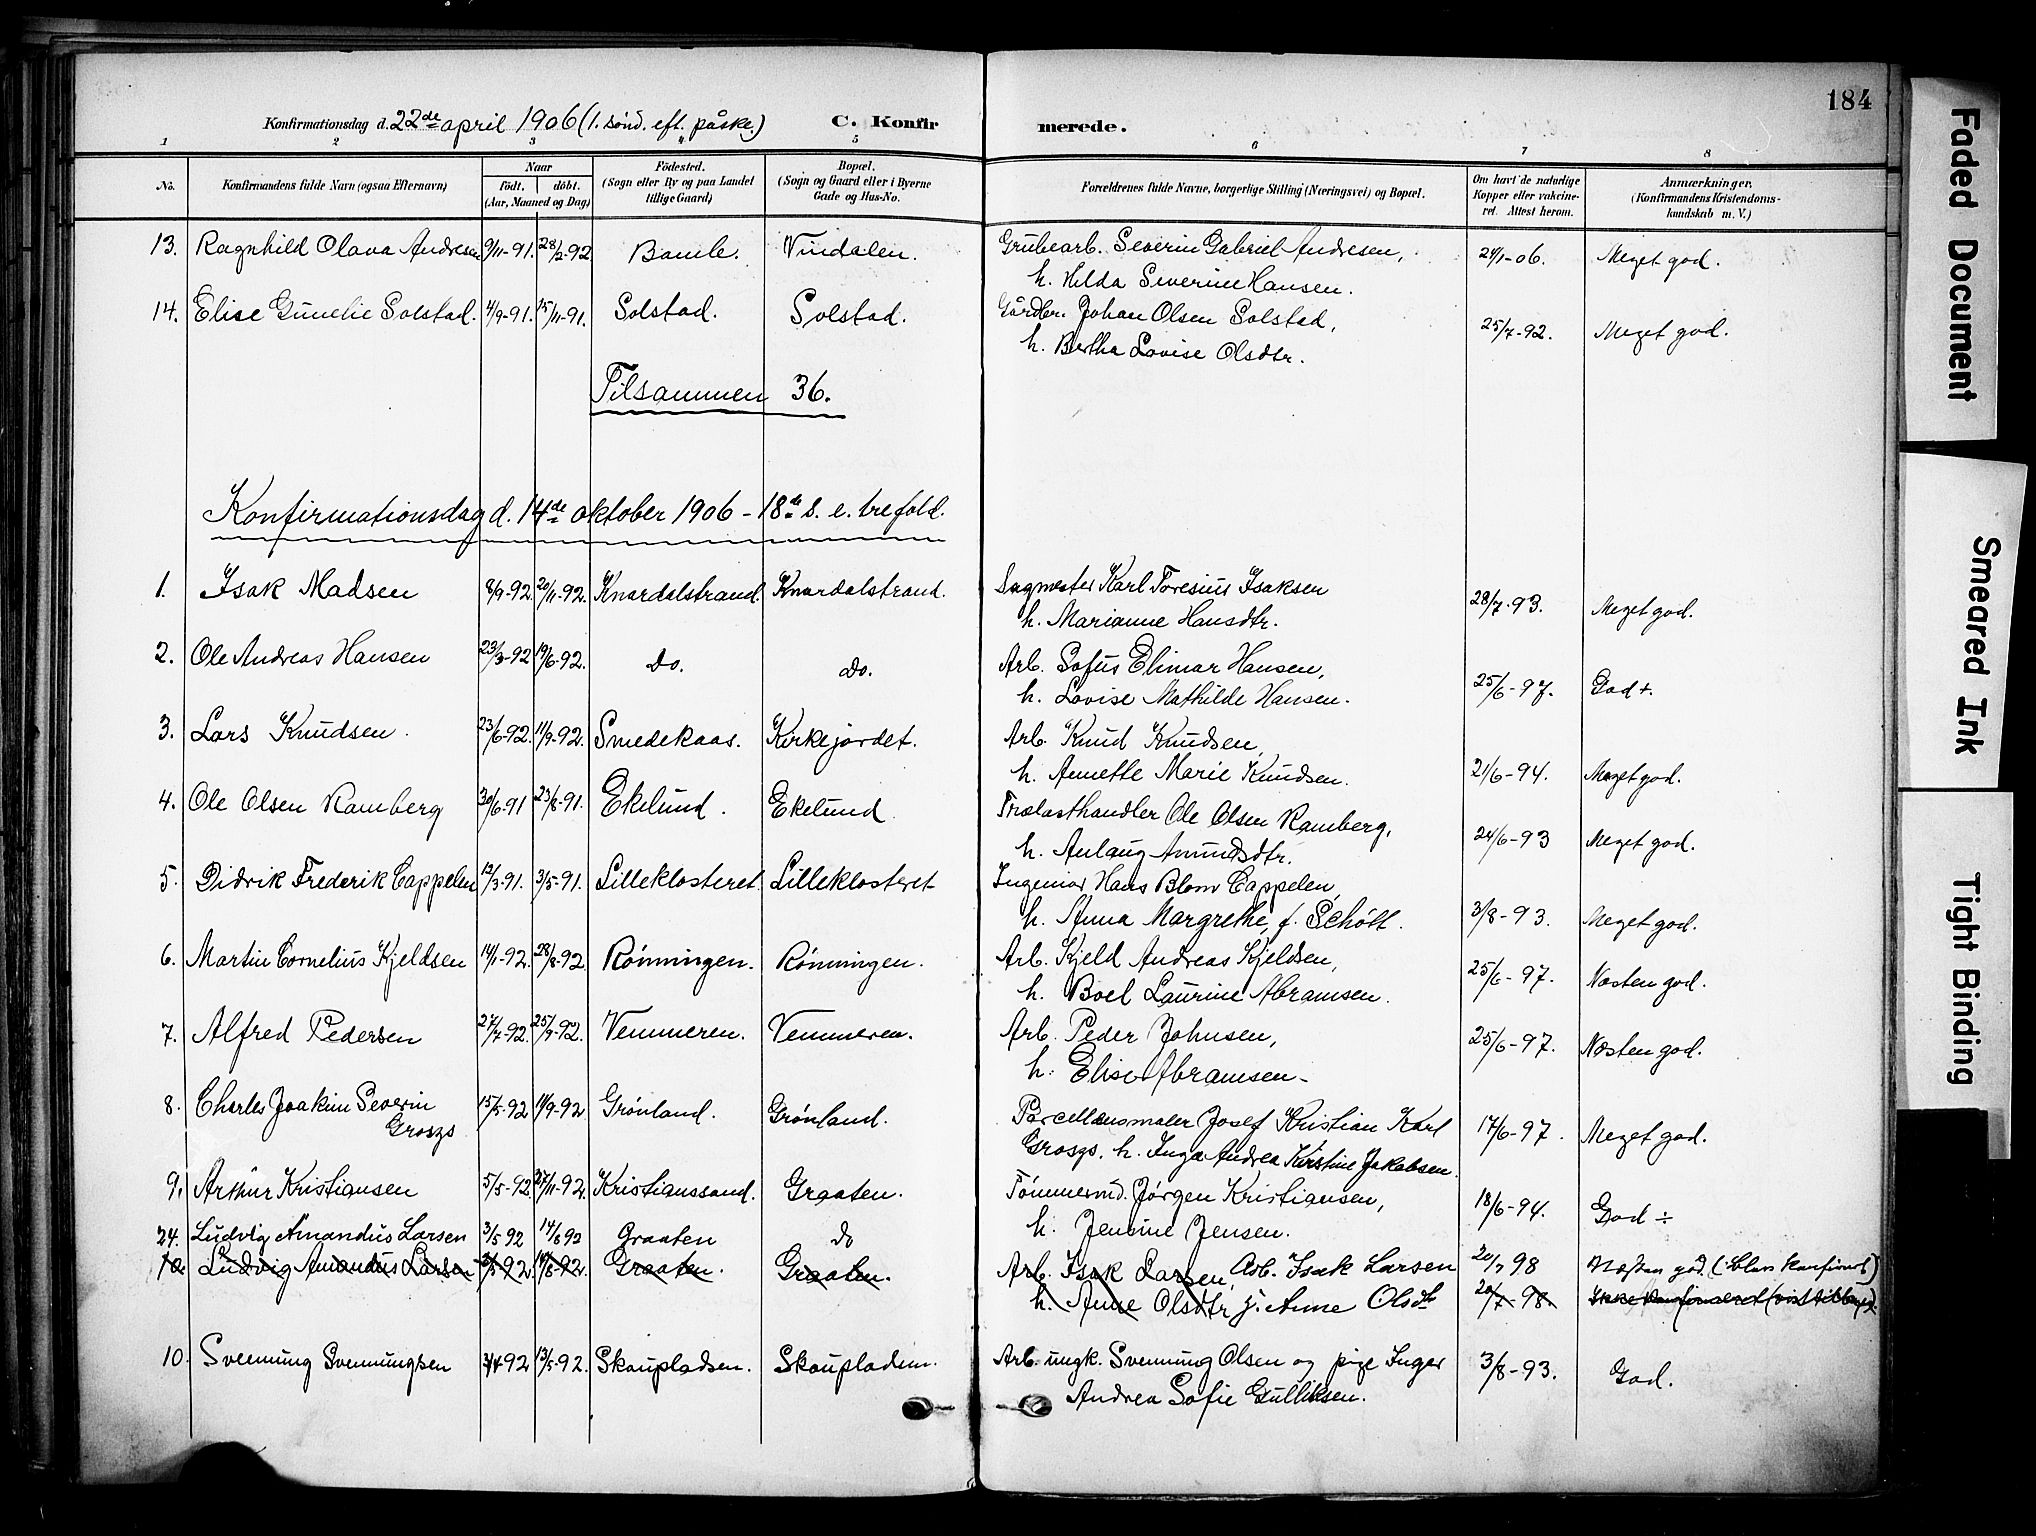 184
Konfirmationsdag d. 22de april 1906 (1. sønd. eft. påske.) C. Konfirmerede.
1 2 3 4 5 6 7 8
No. Konfirmandens fulde Navn (ogsaa Efternavn) Naar født. døbt. (Aar, Maaned og Dag) Fødested. (Sogn eller By og paa Landet tillige Gaard) Bopæl. (Sogn og Gaard eller i Byerne Gade og Hus-No. Forældrenes fulde Navne, borgerlige Stilling (Næringsvei) og Bopæl. Om havt de naturlige Kopper eller vakcineret. Attest herom. Anmærkninger. (Konfirmandens Kristendomskundskab m. V.)
13. Ragnhild Olava Andresen 9/11-91. 28/2-92 Bamle. Vindalen. Grubearb. Severin Gabriel Andresen, 24/1-06. Meget god.
h. Hilda Severine Hansen.
14. Elise Gunelie Solstad. 4/9-91. 15/11-91. Solstad. Solstad. Gårdbr. Johan Olsen Solstad, 25/7-92. Meget god.
h. Bertha Lovise Olsdtr.
Tilsammen 36.
Konfirmationsdag d. 14de oktober 1906 - 18de s. e. trefold.
1. Isak Madsen 8/9-92. 20/11-92. Knardalstrand. Knardalstrand. Sagmester Karl Toresius Isaksen 28/7-93. Meget god.
h. Marianne Hansdtr.
2. Ole Andreas Hansen 23/3-92 19/6-92. do. do. Arb. Sofus Elimar Hansen, 25/6-97. God +.
h. Lovise Mathilde Hansen.
3. Lars Knudsen. 23/6-92. 11/9-92. Smedekaas. Kirkejordet. Arb. Knud Knudsen, 21/6-94. Meget god.
h. Annette Marie Knudsen.
4. Ole Olsen Ramberg 30/6-91 23/8-91. Ekelund. Ekelund Trælasthandler Ole Olsen Ramberg, 24/6-93 Meget god.
h. Anlaug Amundsdtr.
5. Didrik Frederik Cappelen 12/3-91. 3/5-91. Lilleklosteret. Lilleklosteret Ingeniør Hans Blom Cappelen, 3/8-93. Meget god.
h. Anna Margrethe, f. Schøtt.
6. Martin Cornelius Kjeldsen 14/1-92. 28/8-92. Rønningen. Rønningen. Arb. Kjeld Andreas Kjeldsen, 25/6-97. Næsten god.
h. Boel Laurine Abramsen.
7. Alfred Pedersen 27/7-92. 25/9-92. Vemmeren. Vemmeren. Arb. Peder Johnsen, 25/6-97. Næsten god.
h. Elise Abramsen -
8. Charles Joakim Severin Groszs 15/5-92 11/9-92. Grønland. Grønland. Porcellænsmaler Josef Kristian Karl 17/6-97. Meget god.
Groszs. h. Inga Andrea Kirstine Jakobsen.
9. Arthur Kristiansen 5/5-92. 27/11-92. Kristianssand. Graaten. Tømmermd. Jørgen Kristiansen, 18/6-94. God ÷
h. Jensine Jensen.
24. Ludvig Amandus Larsen 3/5 92 14/8 92 Graaten do Arb. Isak Larsen 20/7 98 Næsten god. (: blev konfirmert)
h. Anne Olsdtr
10. Ludvig Amandus Larsen 3/5-92. 14/8-92. Graaten. Graaten. Arb. Isak Larsen, 20/7-98. Ikke konfirmeret
h. Anne Olsdtr
10. Svennung Svennungsen 3/4 92 13/5-92. Skaupladsen. Skaupladsen. Arb. ungk. Svennung Olsen og pige Inger 3/8-93. God.
Andrea Sofie Gulliksen.
Faded Document
Smeared Ink
Tight Binding